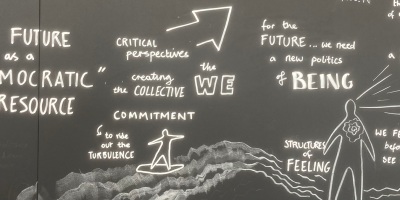 FUTURE
as a
MOCRATIC"
RESOURCE
CRITICAL
perspectives
creating
the COLLECTIVE
the
WE
COMMITMENT
to ride
out the
TURBULENCE
for the
FUTURE... we need
a new politics
of BEING
STRUCTURES
of
FEELING
WE FE
befor
SEE
a